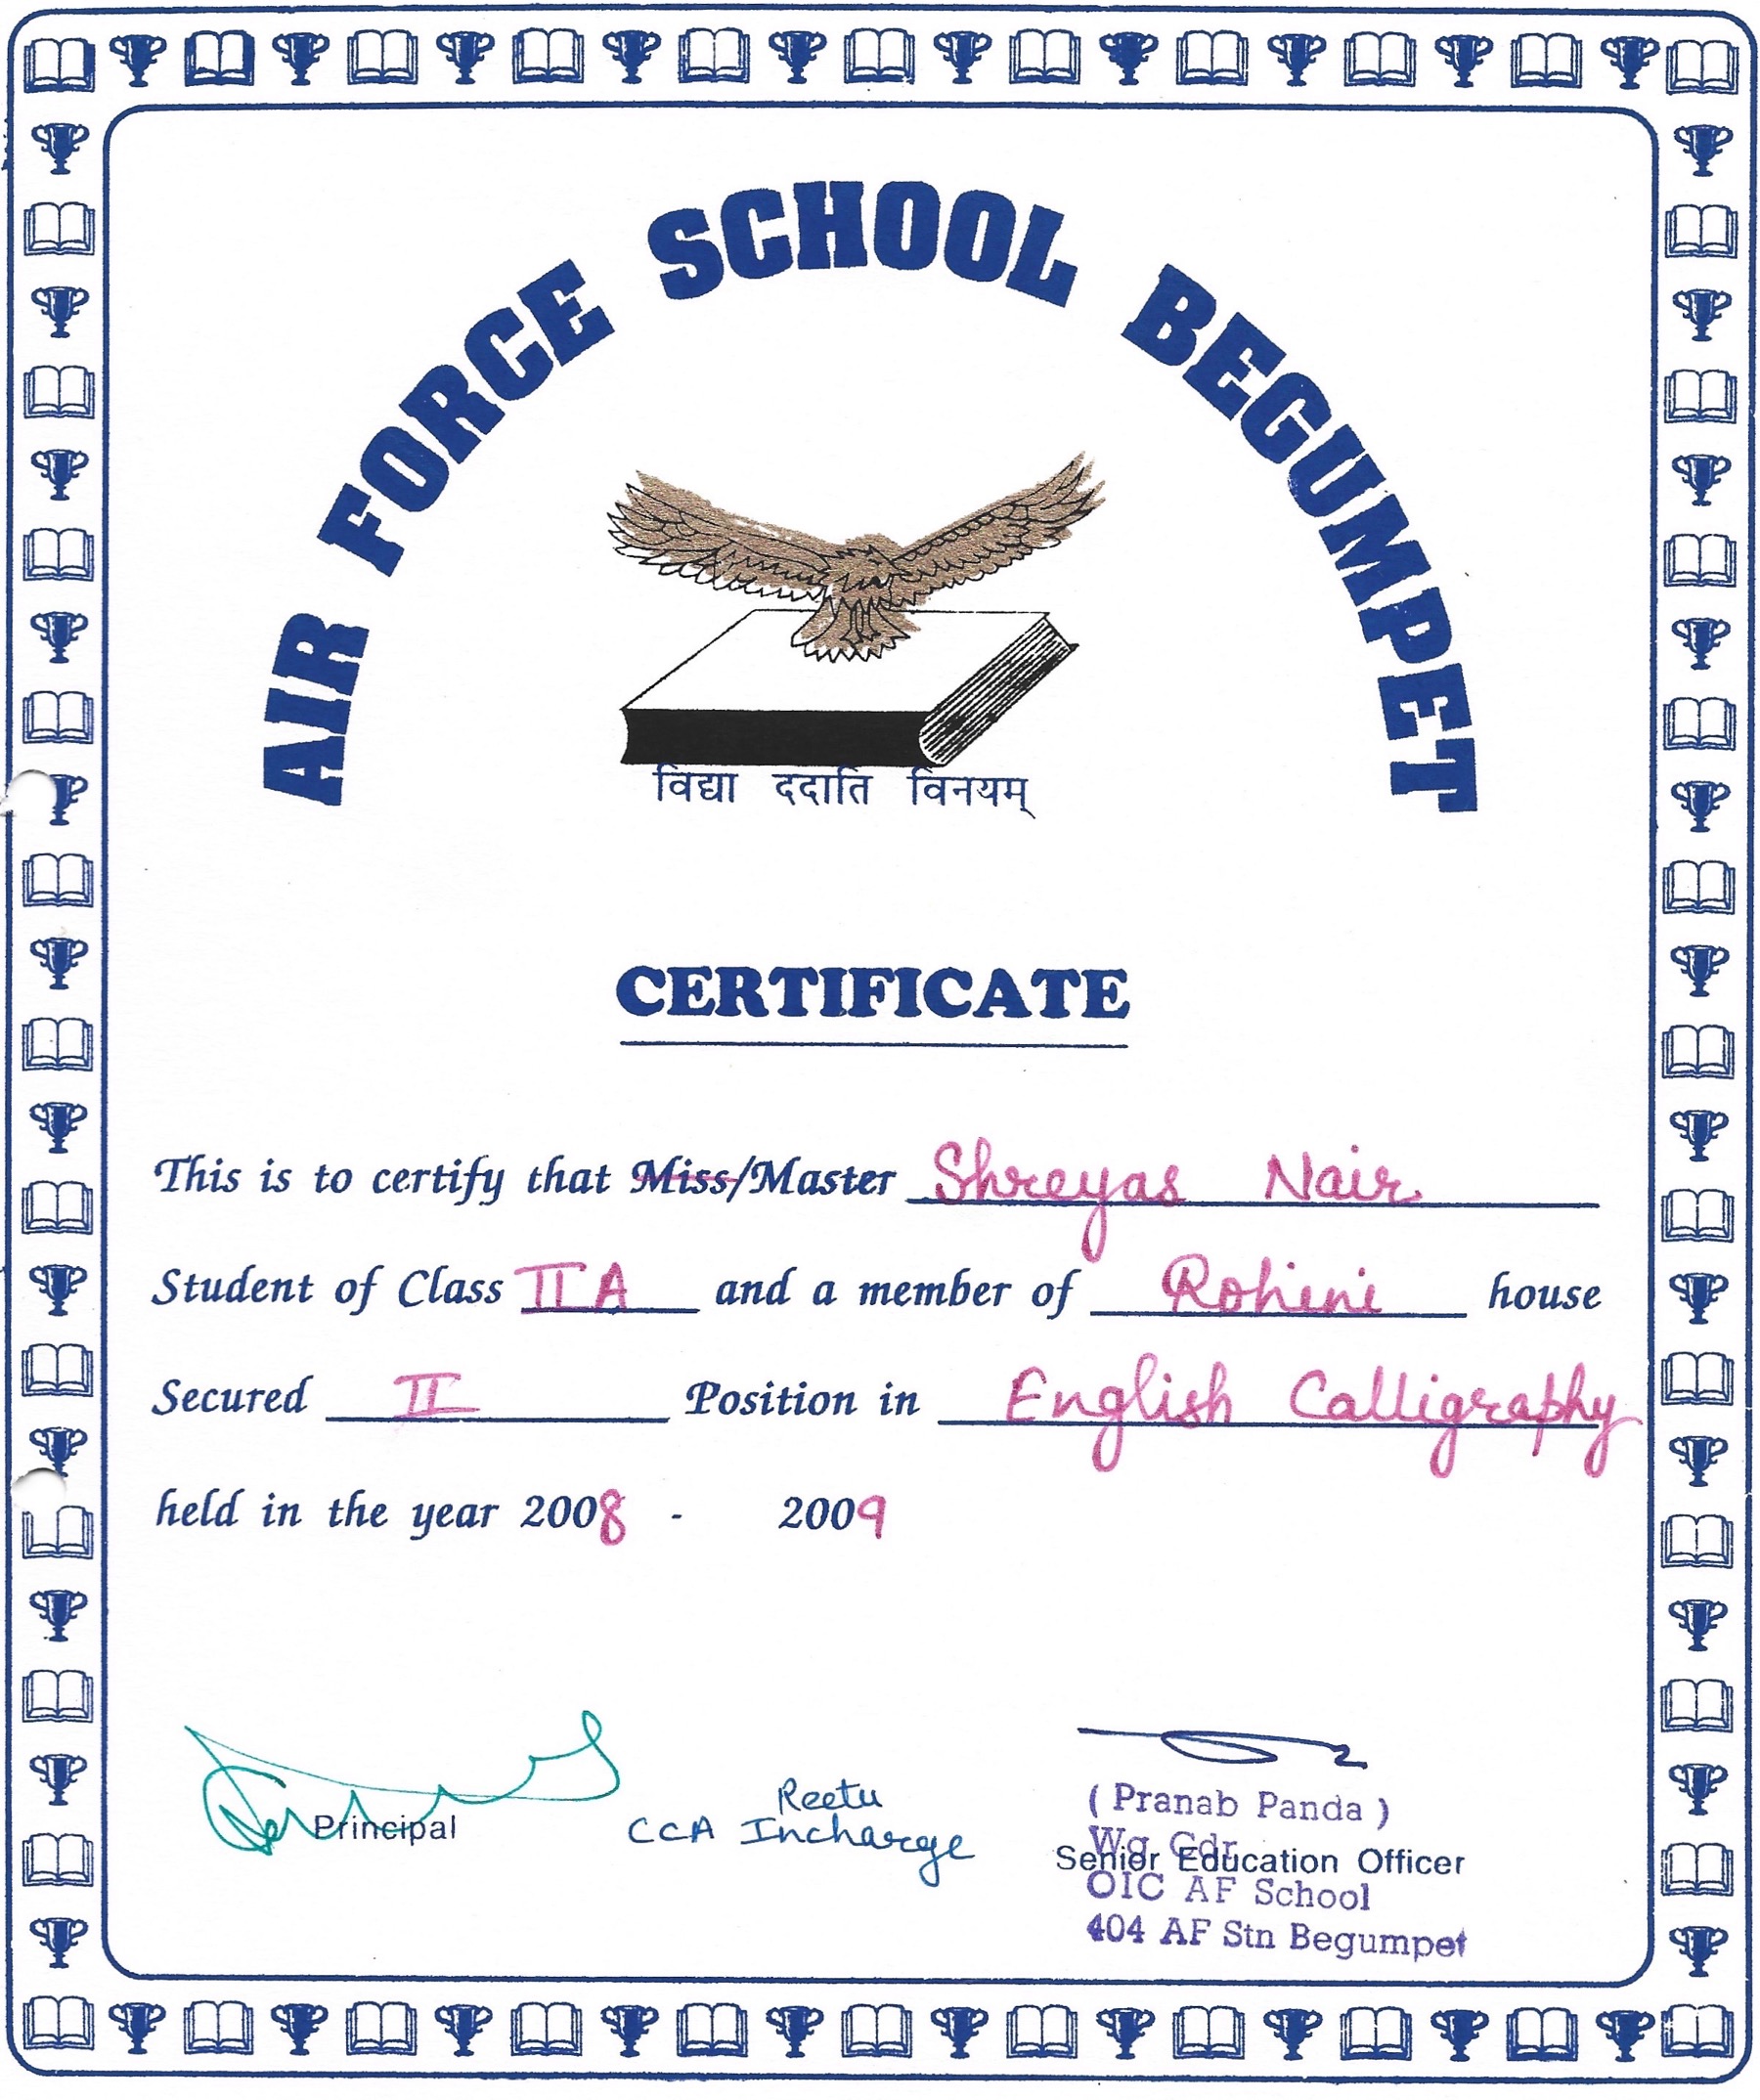 AIR FORCE SCHOOL BEGUMPET
विद्या ददाति विनयम्
CERTIFICATE
This is to certify that Miss/Master Shreyas Nair
Student of Class II A and a member of Rohini house
Secured II Position in English Calligraphy
held in the year 2008 - 2009
Reetu
Principal CCA Incharge
( Pranab Panda )
Wg Cdr
Senior Education Officer
OIC AF School
404 AF Stn Begumpet